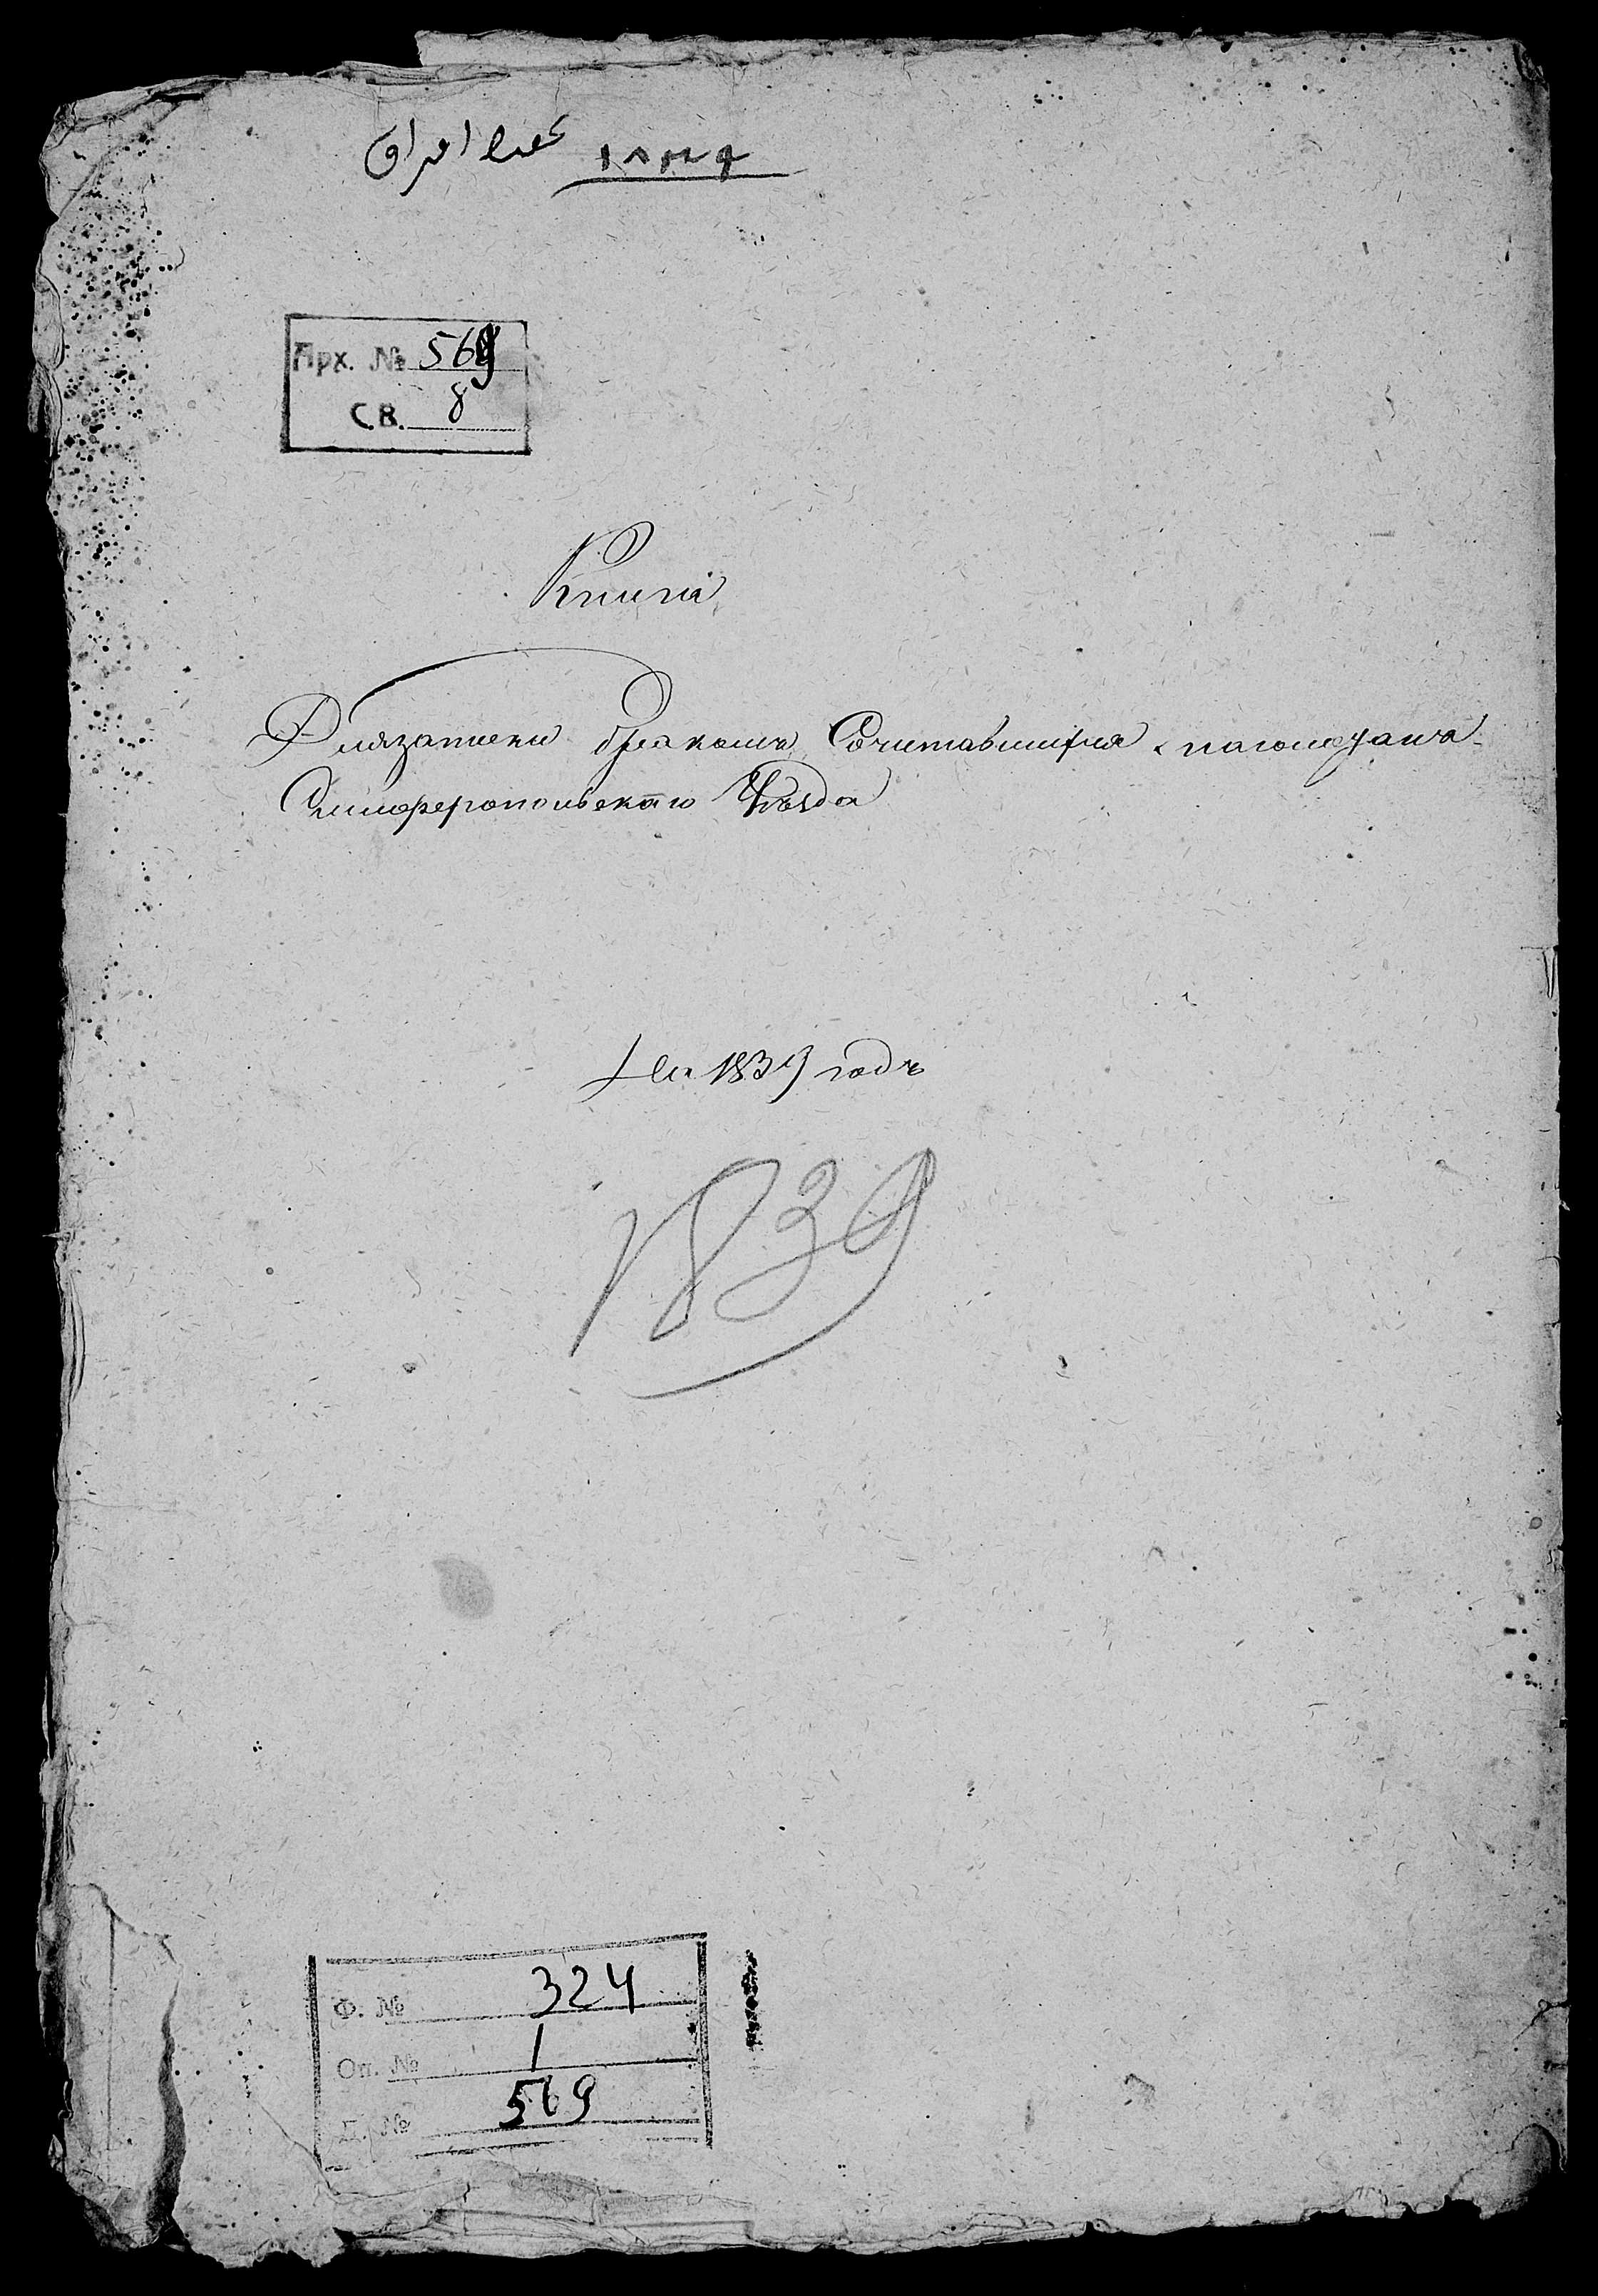 ١٨٣٩
Арх. № 569
С.В. 8
Книга
Для записки бракомъ Сочетавшихся магометанъ
Симферопольскаго Уѣзда
На 1839 годъ
1839
Ф. № 324
Оп. № 1
Д. № 569